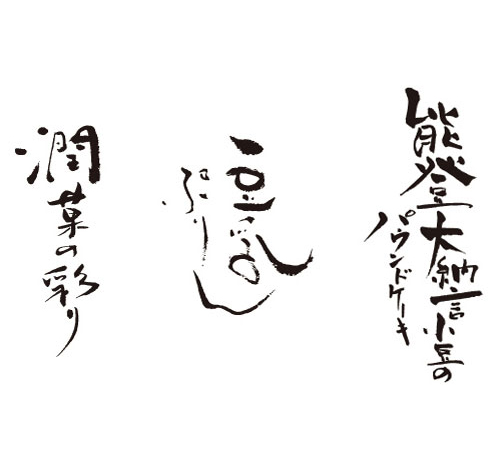 能登大納言小豆の
パウンドケーキ
豆
ぷりん
潤菓の彩り